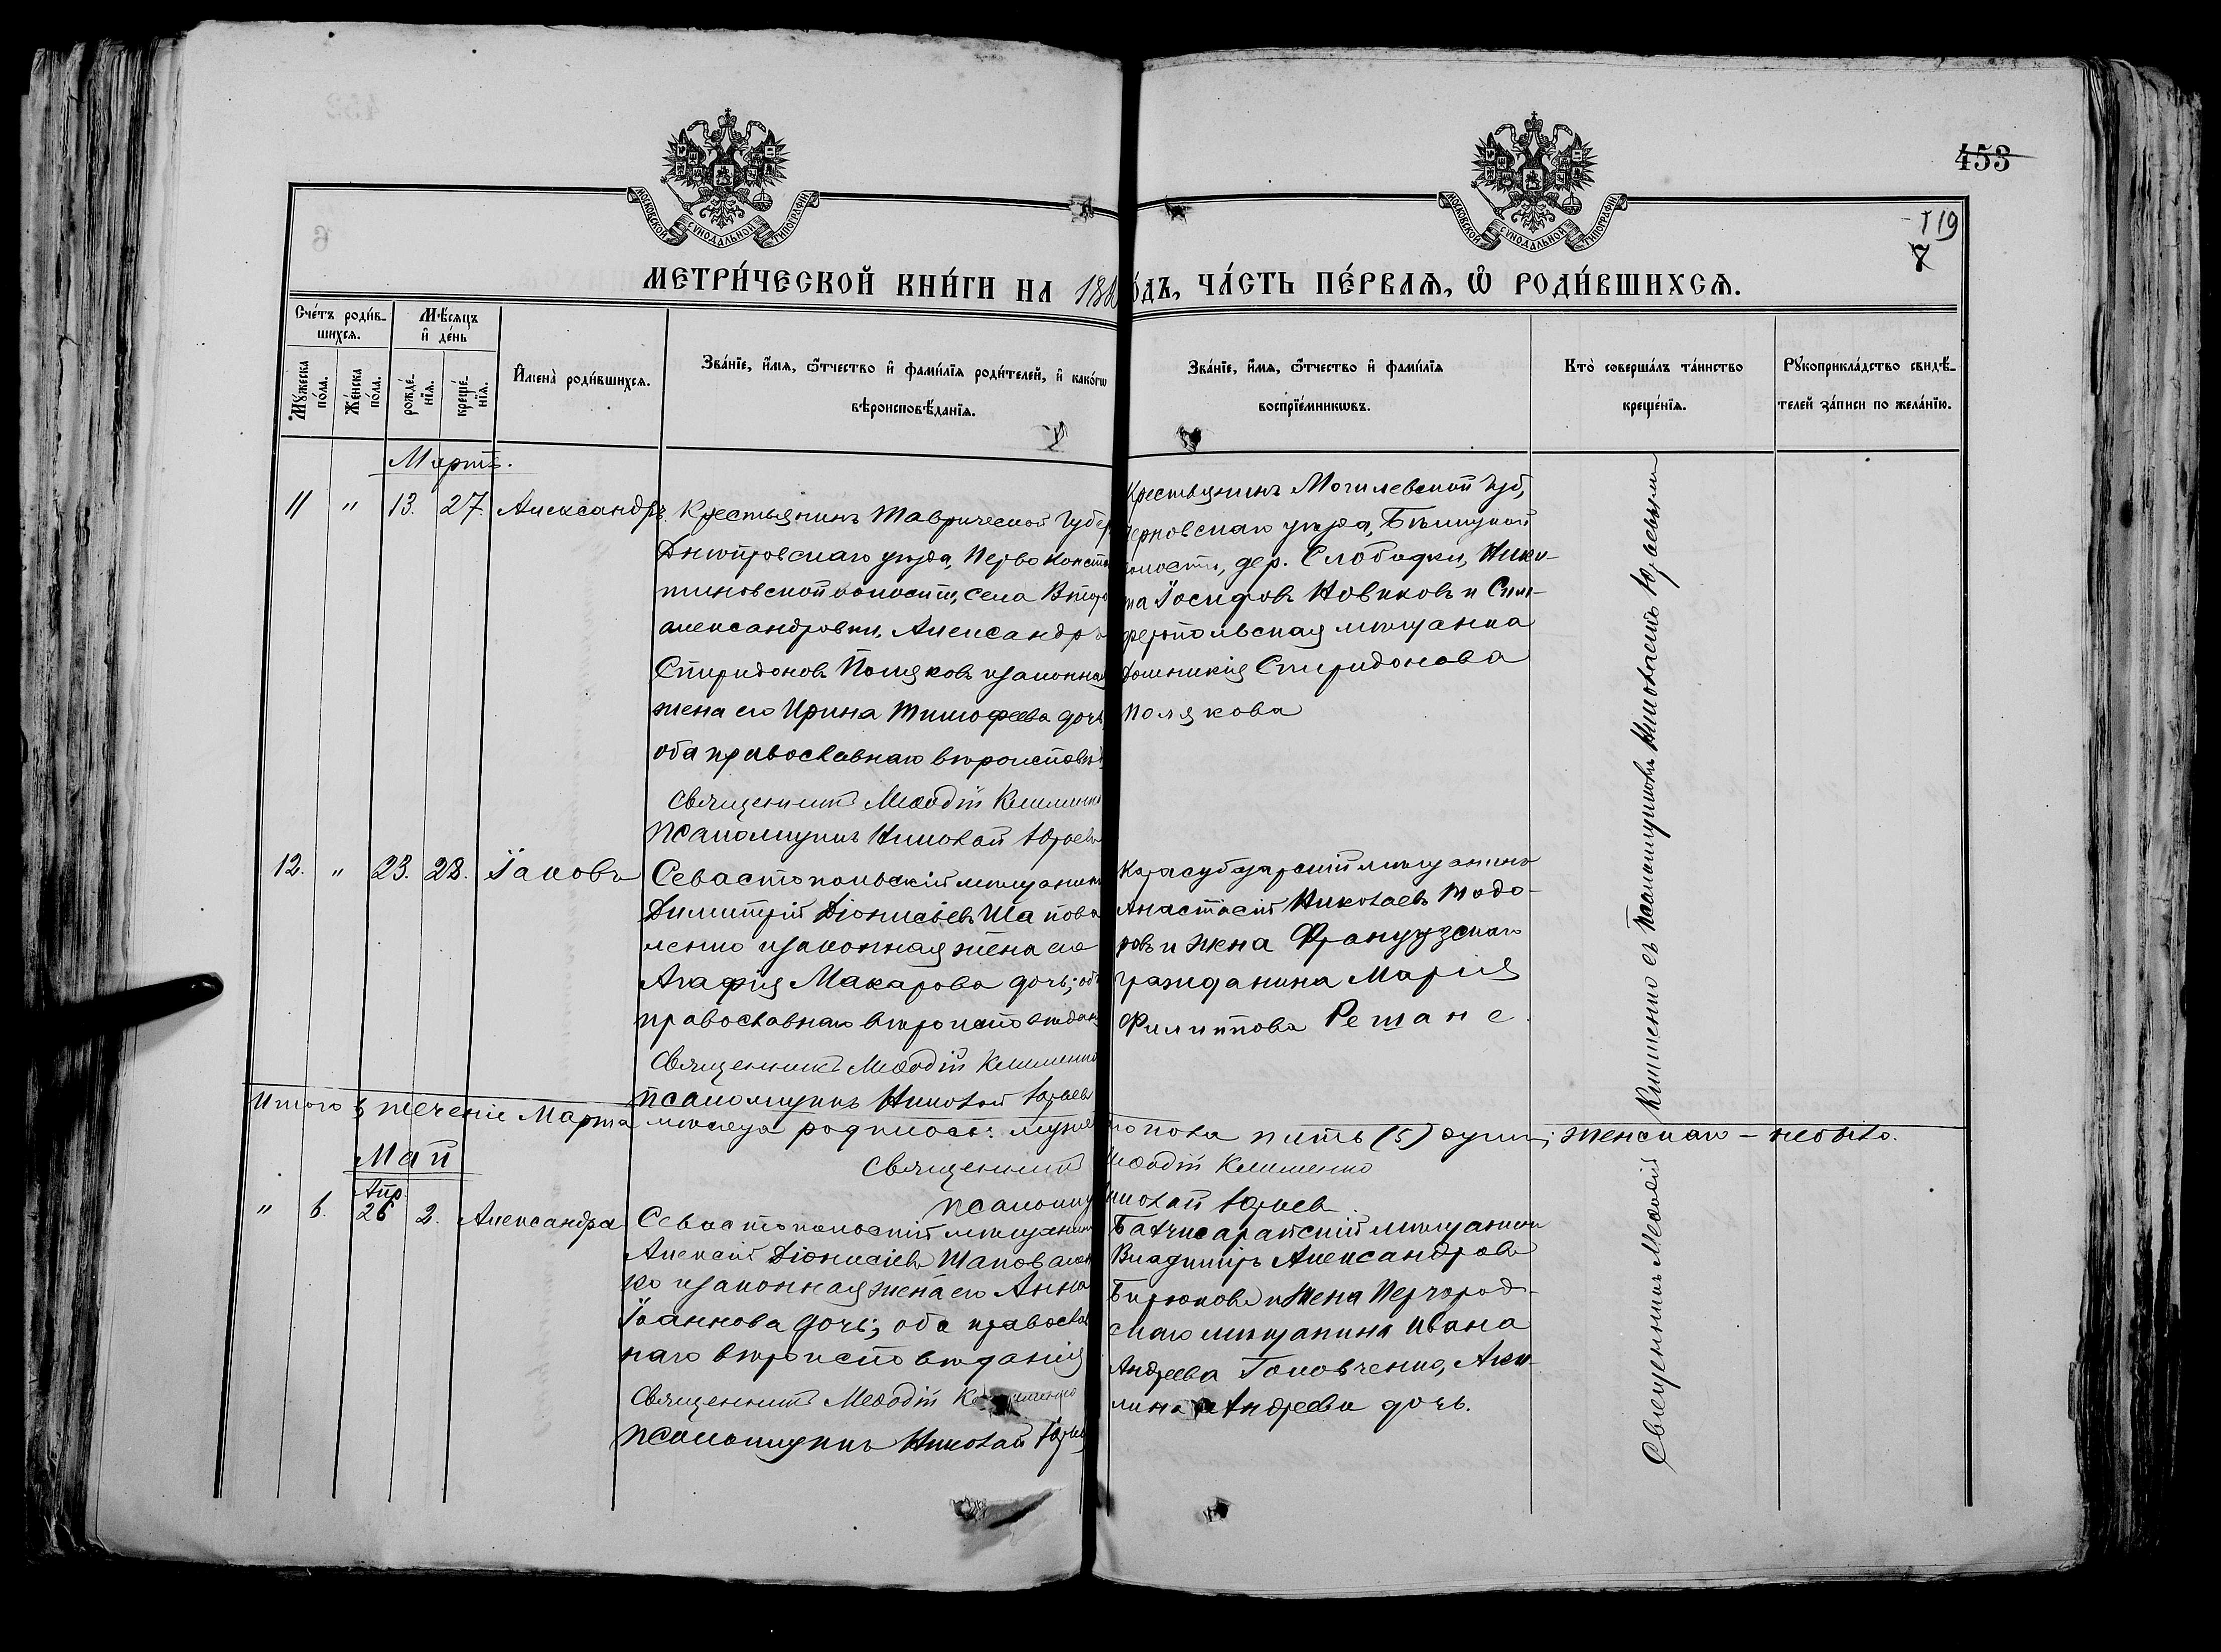 453
119
7
МОСКОВСКОЙ СѴНОДАЛЬНОЙ ТИПОГРАФІИ
МОСКОВСКОЙ СѴНОДАЛЬНОЙ ТИПОГРАФІИ
МЕТРИ́ЧЕСКОЙ КНИ́ГИ НА 188 О́ДЪ, ЧА́СТЬ ПЕ́РВАѦ, Ѡ҆ РОДИ́ВШИХСѦ.
Сче́тъ роди́в-
шихсѧ.
Мѣ́сѧцъ
и҆ де́нь
Мꙋ́жеска
по́ла.
Же́нска
по́ла.
рожде́-
нїѧ.
креще́-
нїѧ.
И҆мена̀ роди́вшихсѧ.
Зва́нїе, и҆́мѧ, ѻ҆́тчество и҆ фами́лїѧ роди́телей, и҆ како́гѡ
вѣроисповѣ́данїѧ.
Зва́нїе, и҆́мѧ, ѻ҆́тчество и҆ фами́лїѧ
воспрїе́мникѡвъ.
Кто̀ соверша́лъ та́инство
креще́нїѧ.
Рꙋкоприкла́дство свидѣ́-
телей за́писи по жела́нїю.
Мартъ.
11 " 13. 27. Александръ.
Крестьянинъ Таврической Губер
Днѣпровскаго уѣзда, Перво Конста
тиновской волости, села Второ
александровки, Александръ
Спиридоновъ Поляковъ и законная
жена его Ирина Тимофеева дочь
оба православнаго вѣроисповѣд
Священникъ Меѳодій Клименко
Псаломщикъ Николай Юрьевъ
Крестьянинъ Могилевской губ,
уѣзда,
волости, дер. Слободки, Ники-
та Іосифовъ Новиковъ и Сим-
феропольская мѣщанка
Домникія Спиридонова
Полякова
12. " 23. 28. Іаковъ
Севастопольскій мѣщанинъ
Димитрій Діонисіевъ Шапова
ленко и законная жена его
Агафія Макарова дочь; оба
православнаго вѣроисповѣдан
Священникъ Меѳодій Клименко
Псаломщикъ Николай Юрьевъ
Карасубазарскій мѣщанинъ
Анастасій Николаевъ Тодо-
ровъ и жена Французскаго
гражданина Марія
Филиппова Решане.
Итого въ теченіе Марта мѣсяца родилось: мужес го пола пять (5) душъ; женскаго – не было.
Священникъ Меѳодій Клименко
Псаломщ Николай Юрьев
Май
" 6. Апр. 26 2. Александра
Севастопольскій мѣщанинъ
Алексій Діонисіевъ Шаповален
ко и законная жена его Анна
Іоаннова дочь; оба православ
наго вѣроисповѣданія
Священникъ Меѳодій Клименко
Псаломщикъ Николай Юрьев
Бахчисарайскій мѣщанинъ
Владиміръ Александровъ
Бирюковъ и жена
скаго мѣщанина Ивана
Андреева Головченко, Аки-
лина Андреева дочь.
Священникъ Меѳодій Клименко съ Псаломщикомъ Николаемъ Юрьевымъ